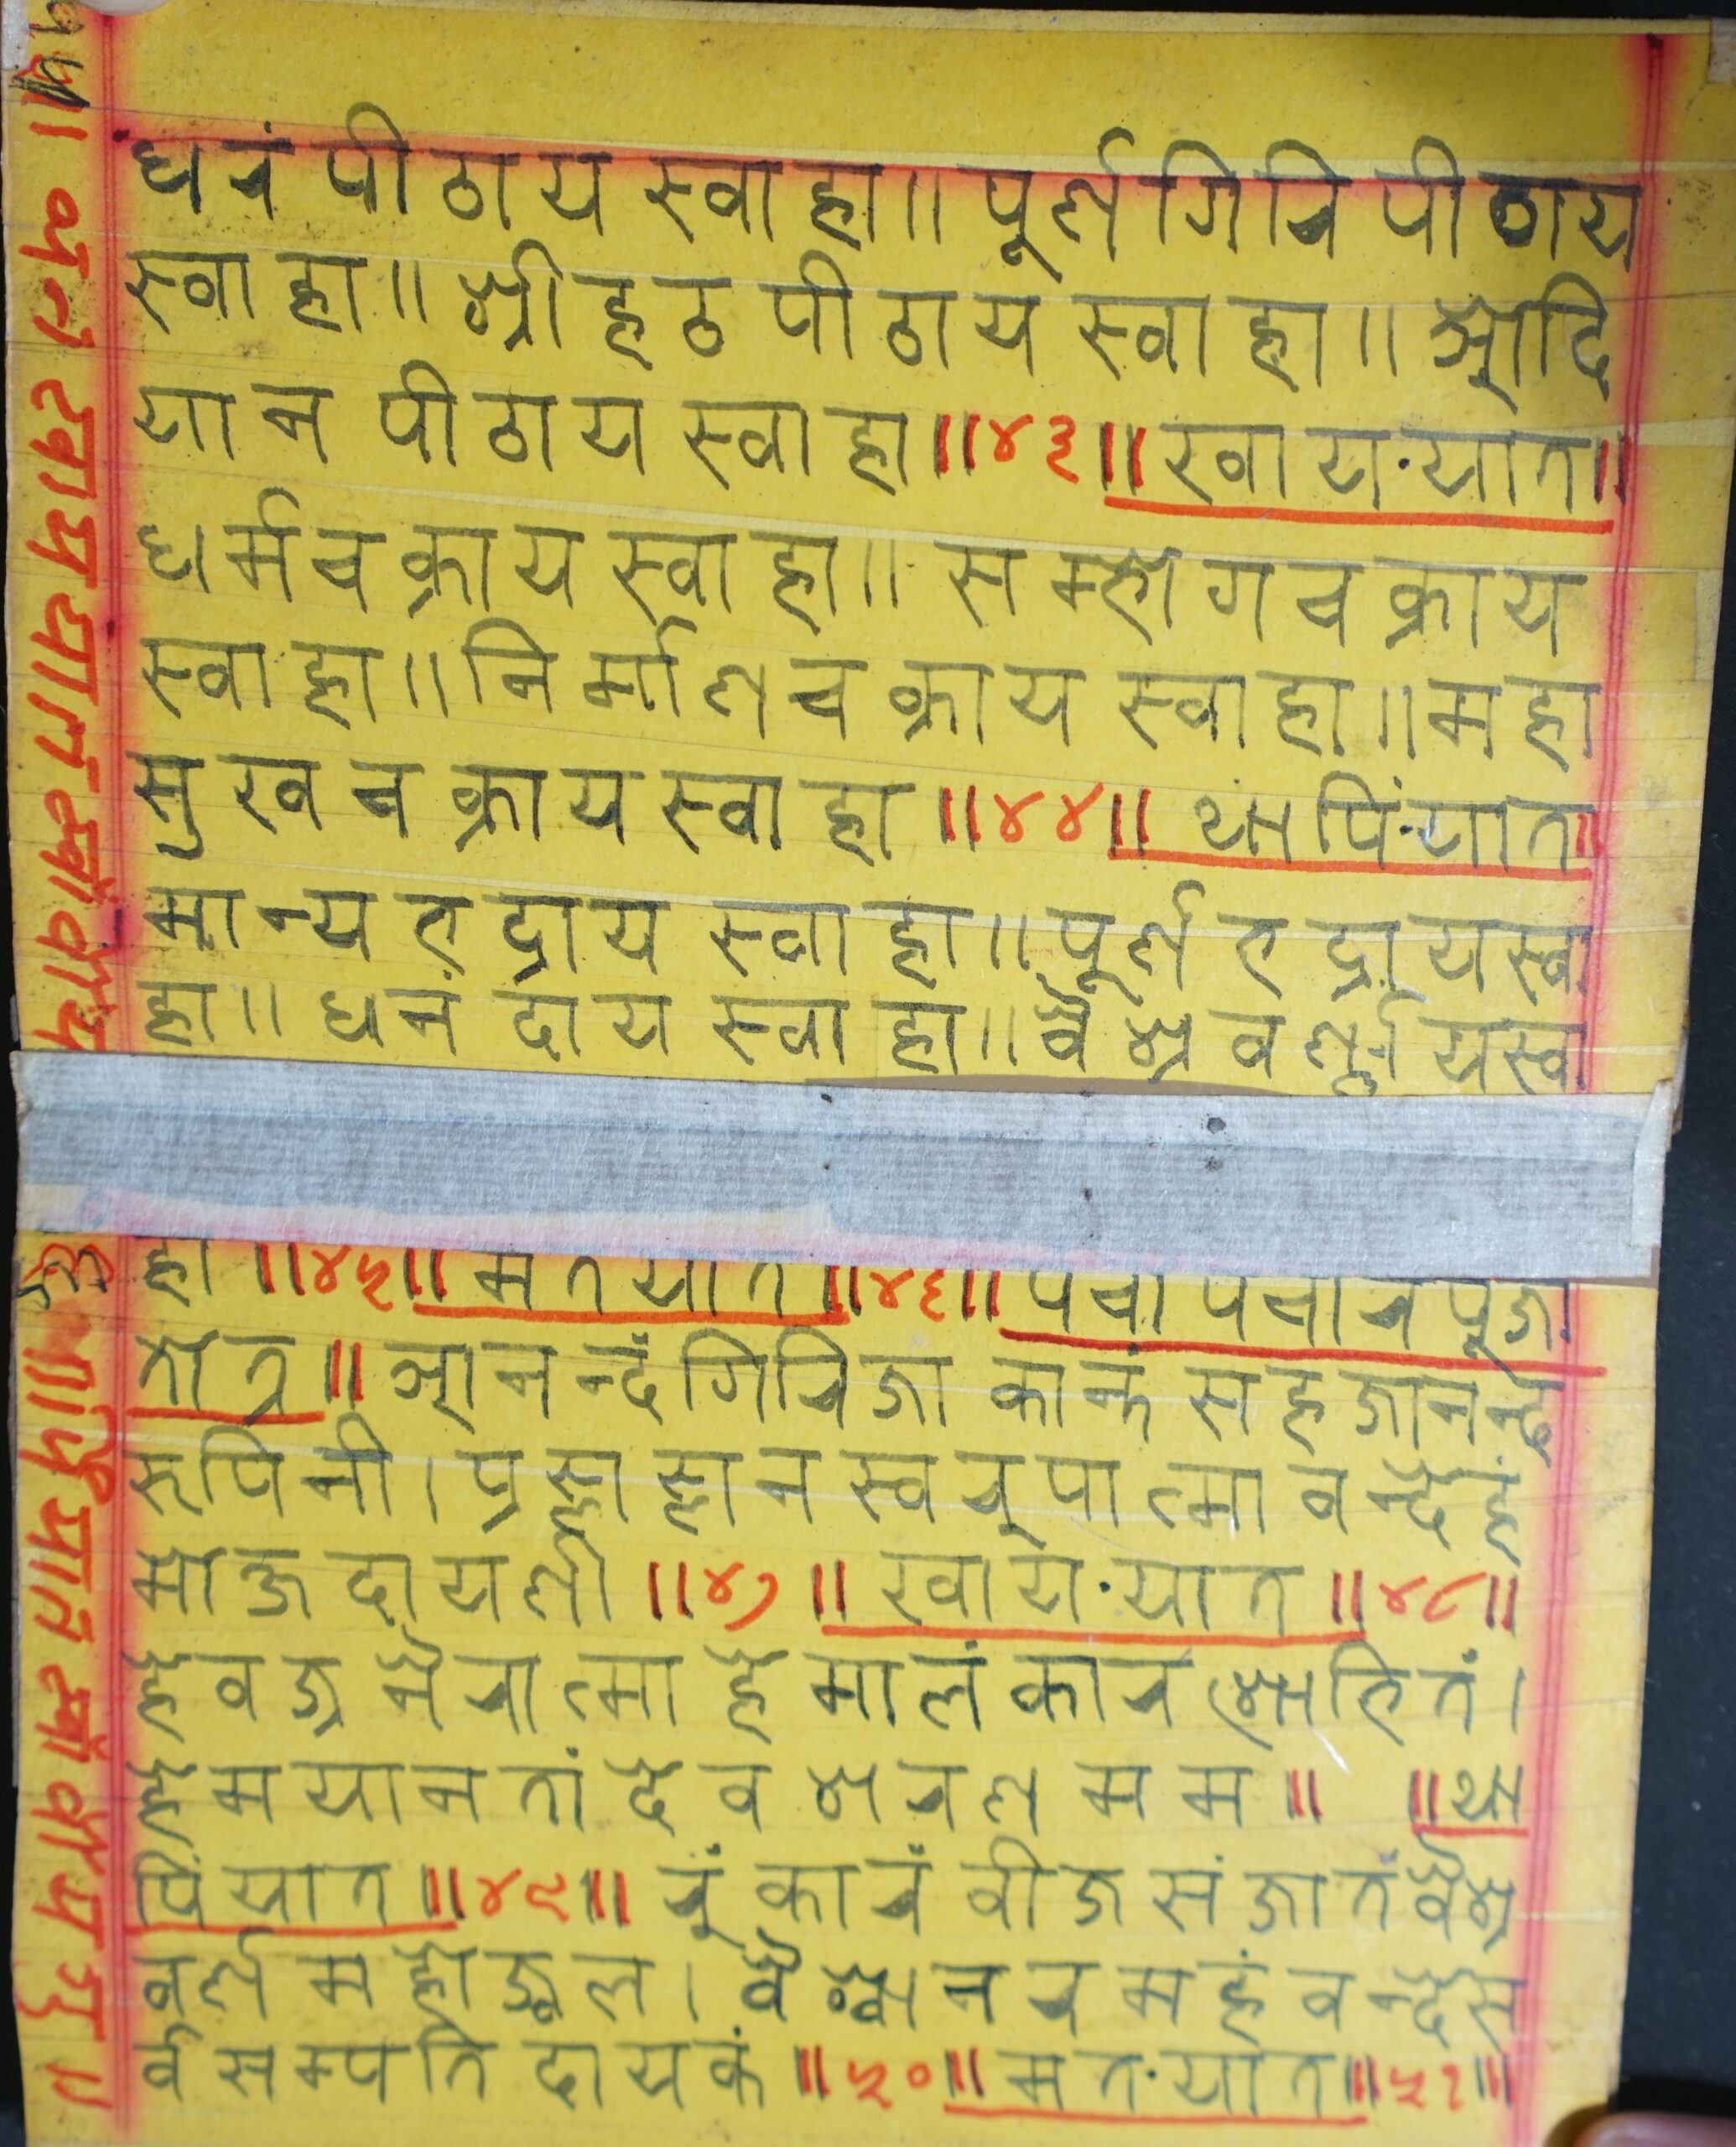 धरं पीठाय स्वाहा॥ पूर्णगिरि पीठाय
स्वाहा॥ श्रीहठ पीठाय स्वाहा॥ ओदि
यान पीठाय स्वाहा॥४३॥ख्वाय॰यात॥
धर्मचक्राय स्वाहा॥ सम्भोगचक्राय
स्वाहा॥ निर्माणचक्राय स्वाहा॥ महा
सुखचक्राय स्वाहा॥४४॥ थापिं॰यात॥
मान्यरुद्राय स्वाहा॥ पूर्णरुद्राय स्वा
हा॥ धनंदाय स्वाहा॥ वैश्रवर्णाय स्वा
हा॥४५॥मतयात॥४६॥ पचोपचारपूजा
तोत्र॥ आनन्दं गिरिजा कान्तं सहजानन्द
रूपिनी। प्रज्ञाज्ञान स्वरूपात्मा वन्देहं
मोक्षदायणी॥४७॥ख्वाय॰यात॥४८॥
हेवज्र नैरात्मा हेमालंकार
हेमयानतां देव शरण मम॥ ॥था
पिंयात॥४९॥ रूंकारं वीजसंजातं वैश्र
वर्ण महोज्वल। वैश्वानरमहं वन्दे स
र्व सम्पति दायकं॥५०॥मत॰यात॥५१॥